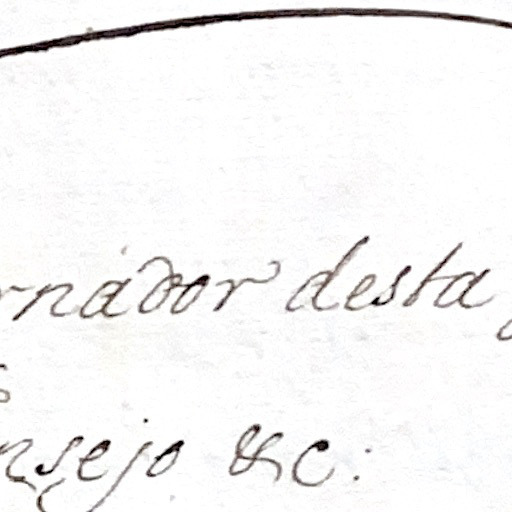 rnador desta
nsejo &c: